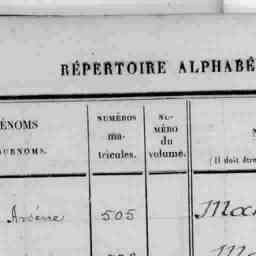 RÉPERTOIRE ALPHABÉ
ÉNOMS
NUMÉROS
ma-
tricules.
NU-
MÉRO
du
volume.
N
(Il doit être
Arsène 505